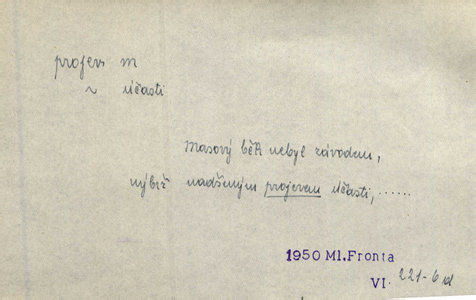 projev m
~ účasti
Masový běh nebyl závodem,
nýbrž nadšeným projevem účasti, ......
1950 Ml.Fronta
VI. 221-6